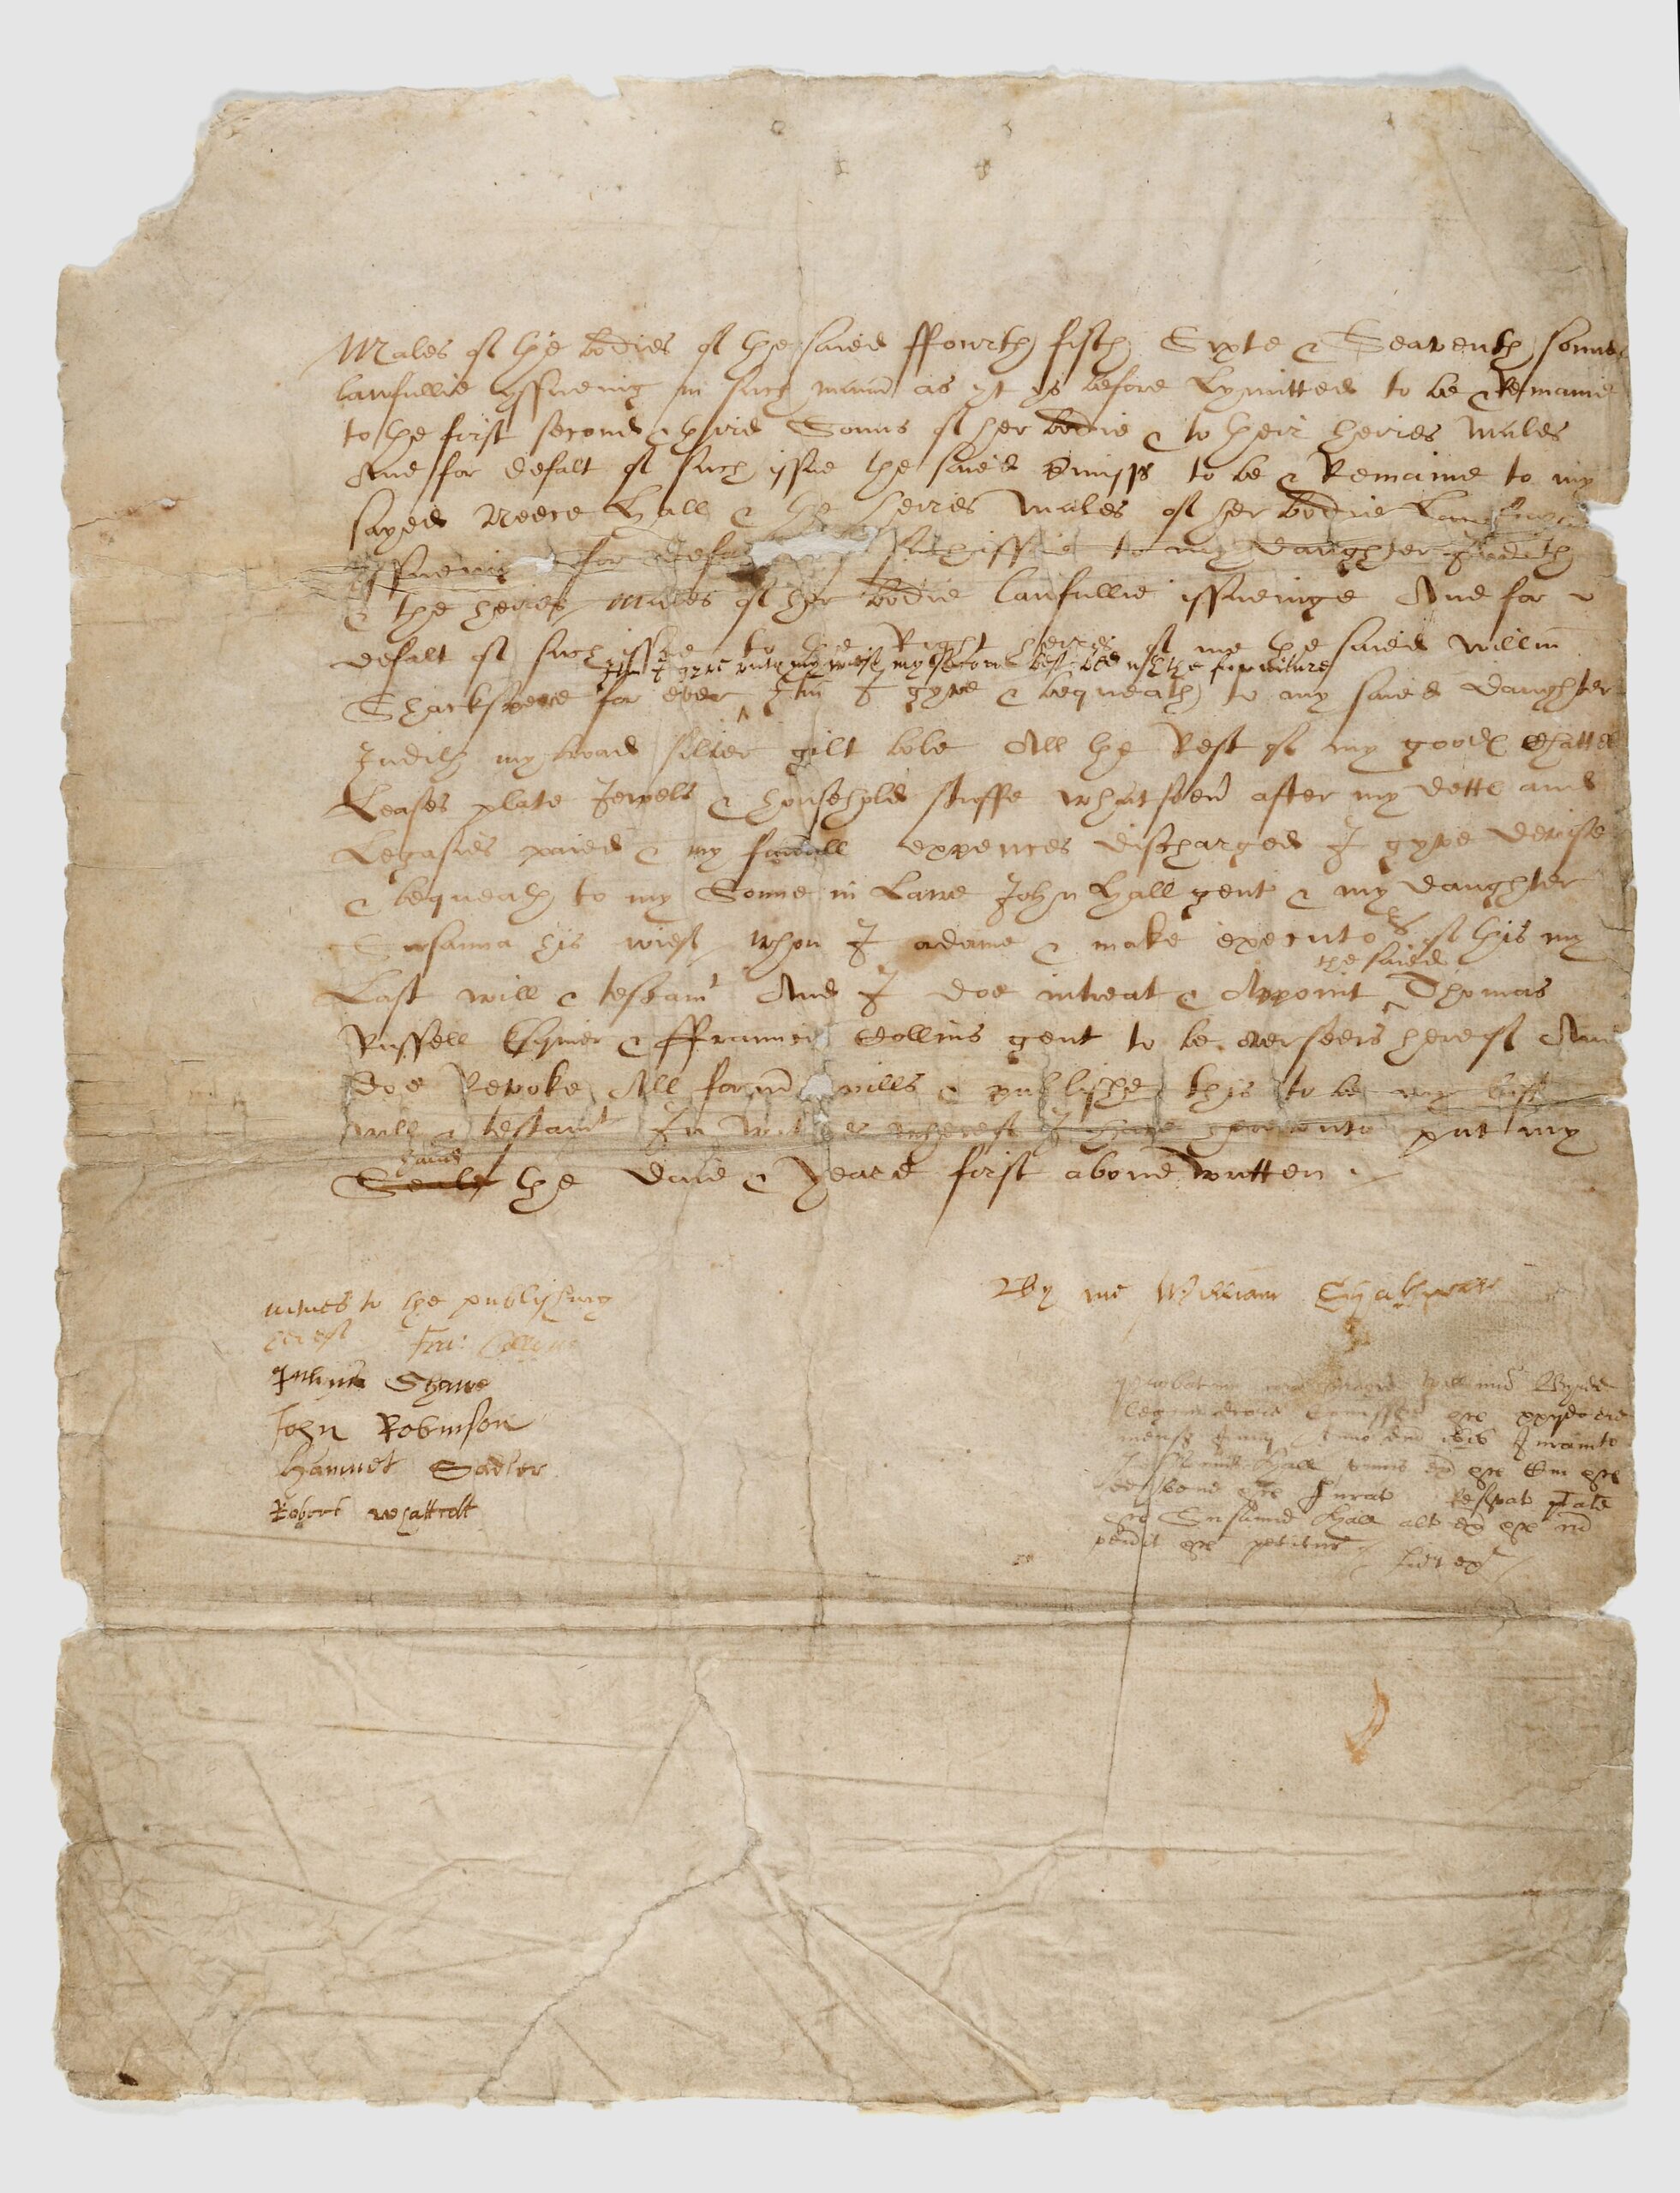 Males of the bodies of the saied ffourth fifth Sixte & Seaventh sonnes
lawfullie yssueing in such manner as yt ys before Lymitted to be & Remaine
to the first second & third Sonns of her bodie & to their heires Males
And for defalt of such issue the saied premisses to be & Remaine to my
sayed Neece Hall & the heires Males of her bodie Lawfully
yssueing for defa such issue to my daughter Judith
& the heires Males of her bodie lawfullie issueinge And for
defalt of such issue to the Right heires of me the saied willm
Itm I gyve unto my wief my second best bed with the furniture
Shackspere for ever Itm I gyve & bequeath to my saied daughter
Judith my broad silver gilt bole All the Rest of my goodes Chattel
Leases plate Jewels & household stuffe whatsoever after my dettes and
Legasies paied & my funerall expences discharged I gyve devise
& bequeath to my Sonne in Lawe John Hall gent & my daughter
Susanna his wief whom I ordaine & make executors of this my
the saied
Last will & testamt And I doe intreat & Appoint Thomas
Russell Esquier & ffrauncis Collins gent to be overseers hereof And
doe Revoke All former wills & publishe this to be my last
will & testamt In witnes whereof I have hereunto put my
hand
Seale the daie & Yeare first above written
By me William Shakspeare
witnes to the publishing
hereof Fra: Collyns
Julius Shawe
John Robinson
Hamnet Sadler
Robert Whattcott